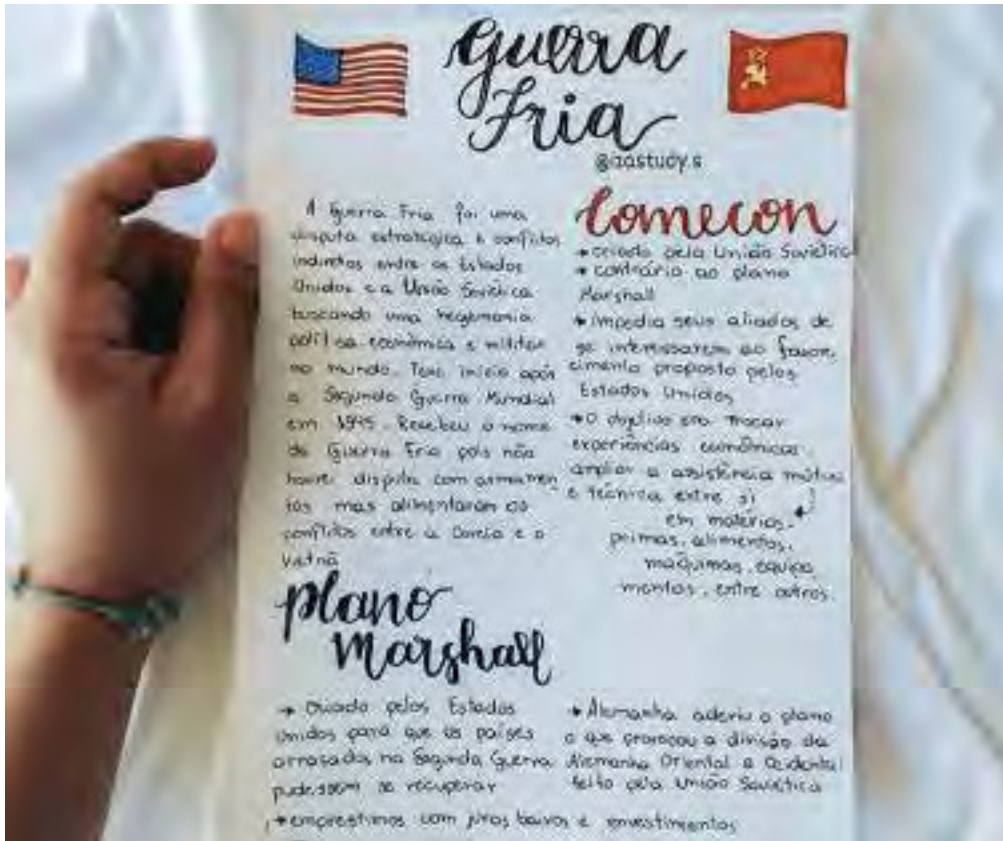 Guerra
Fria
@izastudy.s
A Guerra Fria foi uma
disputa estratégica e conflitos
indiretos entre os Estados
Unidos e a União Soviética
buscando uma hegemonia
política econômica e militar
no mundo. Teve início após
a Segunda Guerra Mundial
em 1945. Recebeu o nome
de Guerra Fria pois não
houve disputa com armamen
tos mas alimentaram os
conflitos entre a Coreia e o
Vietnã
Comecon
→ criado pela União Soviética
→ contrário ao plano
Marshall
→ impedia seus aliados de
se interessarem ao favore
cimento proposto pelos
Estados Unidos
→ O objetivo era trocar
experiências econômicas,
ampliar a assistência mútua
e técnica entre si
em matérias-
primas, alimentos,
máquinas, equipa
mentos, entre outros.
plano
Marshall
→ Criado pelos Estados
Unidos para que os países
arrasados na Segunda Guerra
pudessem se recuperar
→ emprestimos com juros baixos e investimentos
→ Alemanha aderiu o plano
o que provocou a divisão da
Alemanha Oriental e Ocidental
feito pela União Soviética